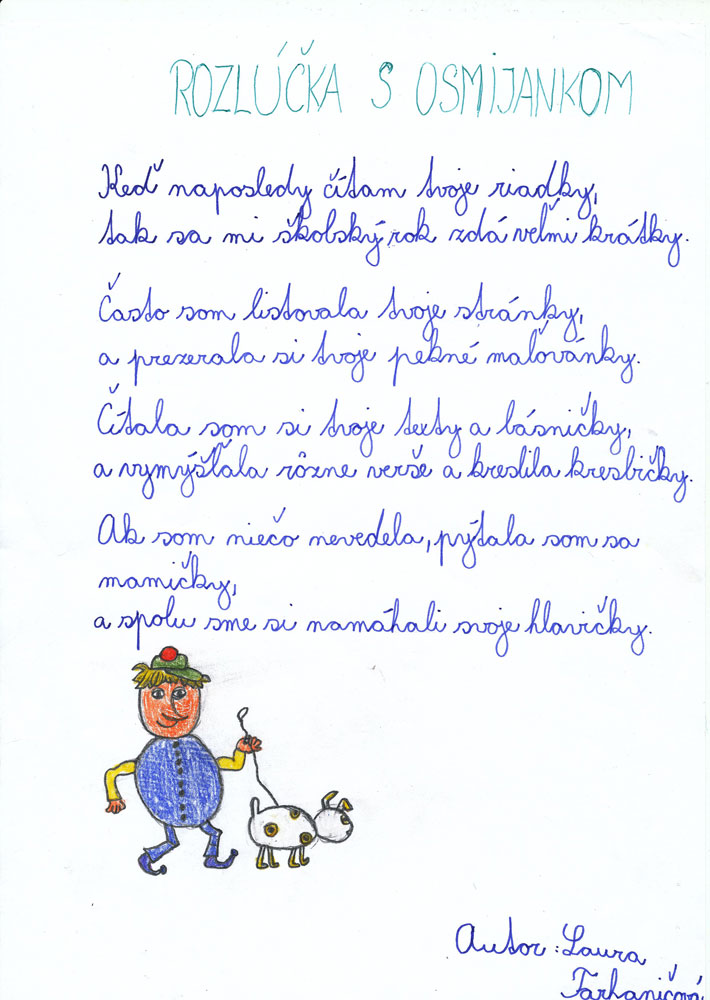 ROZLÚČKA S OSMIJANKOM
Keď naposledy čítam tvoje riadky,
tak sa mi školský rok zdá veľmi krátky.
Často som listovala tvoje stránky,
a prezerala si tvoje pekné maľovánky.
Čítala som si tvoje texty a básničky,
a vymýšľala rôzne verše a kreslila kresbičky.
Ak som niečo nevedela, pýtala som sa
mamičky,
a spolu sme si namáhali svoje hlavičky.
Autor: Laura
Tarhaničová